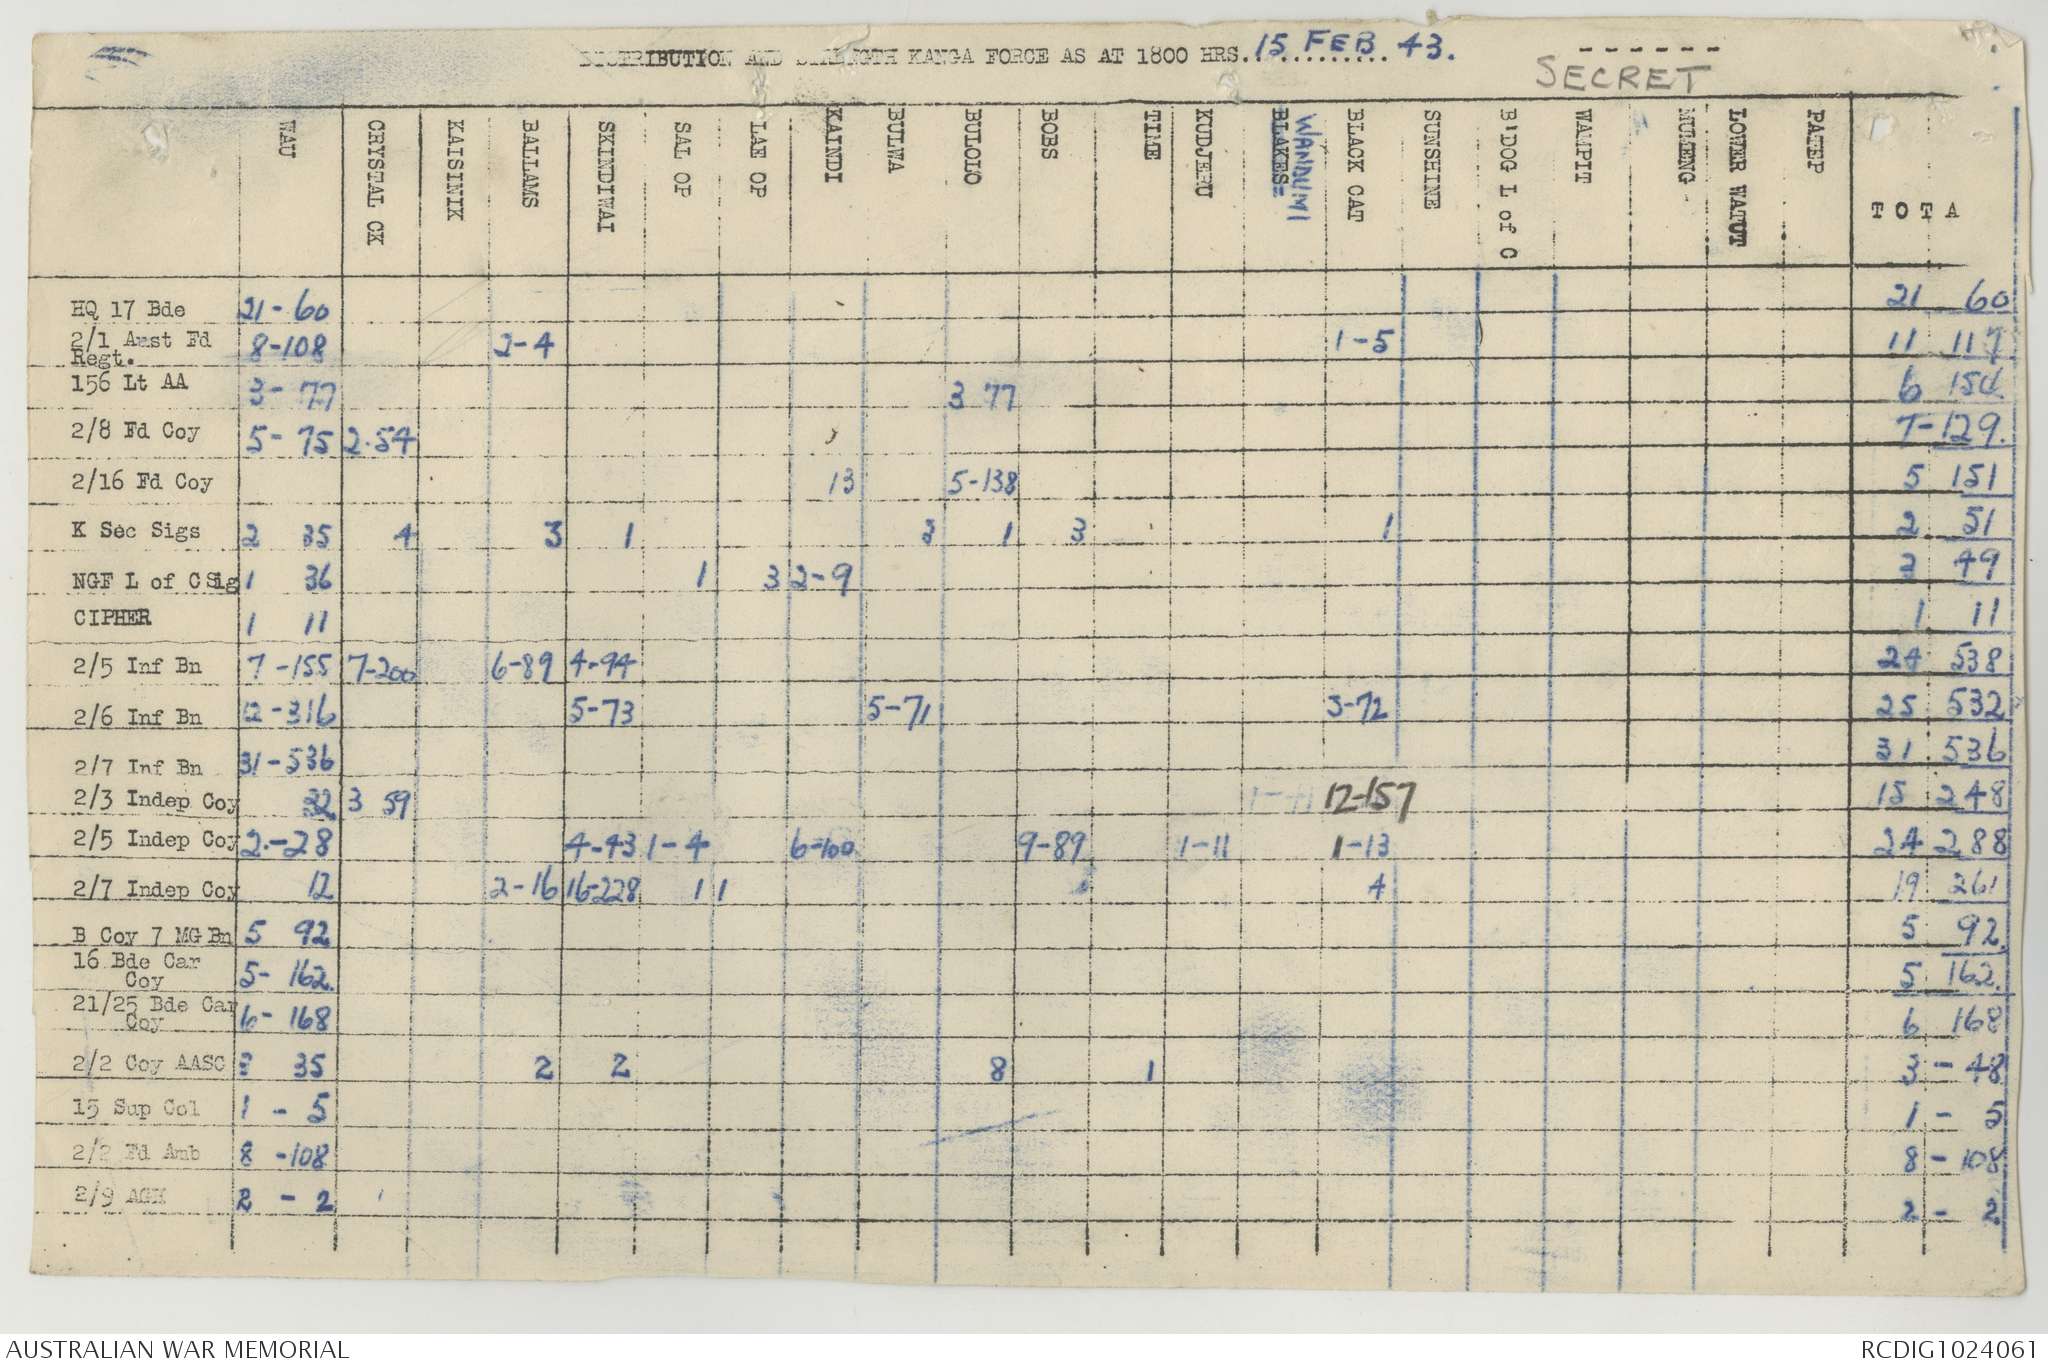 DISTRIBUTION AND STRENGTH KANGA FORCE AS AT 1800 HRS. 15 FEB 43.
SECRET
WAU CRYSTAL CK KAISINIK BALLAMS SKINDIWAI SAL OP LAE OP KAINDI BULWA BULOLO BOBS TILE KUDJERU BLAKES= WANDUMI BLACK CAT SUNSHINE B'DOG L of C WAMPIT MUMENG LOWER WATUT PATEP T O T A
HQ 17 Bde 21-60 21 60
2/1 Aust Fd Regt. 8-108 2-4 1-5 11 117
156 Lt AA 3-77 3 77 6 154
2/8 Fd Coy 5-75 2-54 7-129.
2/16 Fd Coy 13 5-138 5 151
K Sec Sigs 2 35 4 3 1 3 1 3 1 2 51
NGF L of C Sig 1 36 1 3 2-9 3 49
CIPHER 1 11 1 11
2/5 Inf Bn 7-155 7-200 6-89 4-94 24 538
2/6 Inf Bn 12-316 5-73 5-71 3-72 25 532
2/7 Inf Bn 31-536 31 536
2/3 Indep Coy 32 3 59 12-157 15 248
2/5 Indep Coy 2-28 4-43 1-4 6-100 9-89 1-11 1-13 24 288
2/7 Indep Coy 12 2-16 16-228 1 1 4 19 261
B Coy 7 MG Bn 5 92 5 92.
16 Bde Car Coy 5-162. 5 162.
21/25 Bde Car Coy 6-168 6 168
2/2 Coy AASC 3 35 2 2 8 1 3-48
15 Sup Col 1-5 1-5
2/2 Fd Amb 8-108 8-108
2/9 AGH 2-2 2-2
AUSTRALIAN WAR MEMORIAL RCDIG1024061